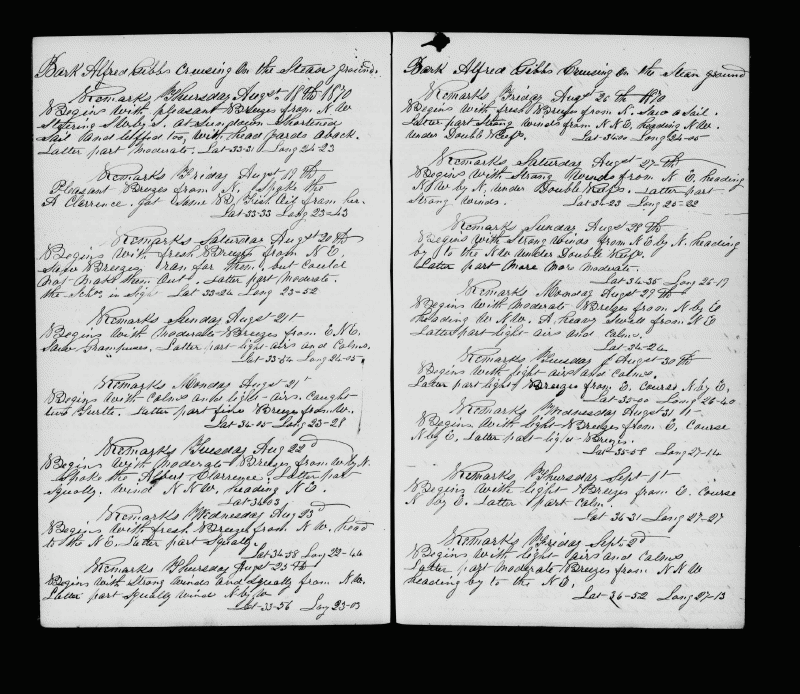 Bark Alfred Gibbs Cruising On the Stean ground.
Remarks Thursday Augst 18th 1870
Begins With pleasant Breezes from N W
Stering at Sundown Shortened
Sail and luffed too, with head yards aback.
Latter part moderate. Lat 33-31 Long 24-23
Remarks Friday Augst 19th
Pleasant Breezes from N. Spoke the
A Clerrence. got Some from her.
Lat 33-33 Long 23-43
Remarks Saturday Augst 20th
Begins With fresh Breezes from N E.
Saw Breezes ran for them, but Could
not make them Out. Latter part moderate.
the Schr in Sight Lat 33-24 Long 23-52
Remarks Sunday Augst 21t
Begins With moderate Breezes from E N E.
Saw Grampuses, Latter part light airs and Calms.
Lat 33-54 Long 24-05
Remarks Monday Augst 21t
Begins With Calms and light airs. Caught
two Turtle. Latter part fine Breeze from W.
Lat 34-05 Long 23-28
Remarks Tuesday Aug 22d
Begins With moderate Breezes from W by N.
Spoke the Clarrence. Latter part
Squally. Wind N N W. heading N E.
Lat 34-03
Remarks Wednesday Aug 23d
Begins With fresh Breezes from N W. head
to the N E. Latter part Squally.
Lat 34-38 Long 22-44
Remarks Thursday Augst 25th
Begins With Strong winds and Squally from N W.
Latter part Squally wind N by W
Lat 33-56 Long 23-03
Bark Alfred Gibbs Cruising On the Stean ground
Remarks Friday Augst 26th 1870
Begins With fresh Breezes from N. Saw a Sail.
Latter part Strong winds from N N E, heading N W.
under Double Reefs. Lat 34-00 Long 24-05
Remarks Saturday Augst 27th
Begins With Strong Winds from N E. heading
N W by N. Under Double Reefs. Latter part
Strong Winds. Lat 34-23 Long 25-22
Remarks Sunday Augst 28th
Begins With Strong Winds from N E by N. heading
by to the N W Under Double Reefs.
Latter part More More moderate.
Lat 34-35 Long 26-17
Remarks Monday Augst 29th
Begins With moderate Breezes from N by E
heading W N W. A heavy Swell from N E
Latter part light airs and Calms.
Lat 34-24
Remarks Tuesday Augst 30th
Begins With light airs and Calms.
Latter part light Breezes from E. Course N by E.
Lat 35-00 Long 26-40
Remarks Wednesday Augst 31t
Begins With light Breezes from E. Course
N by E. Latter part light Breezes.
Lat 35-58 Long 27-14
Remarks Thursday Sept 1t
Begins With light Breezes from E. Course
N by E. Latter part Calm.
Lat 36-31 Long 27-27
Remarks Friday Sept 2d
Begins With light airs and Calms
Latter part moderate Breezes from N N W
heading by to the N E.
Lat 36-52 Long 27-13